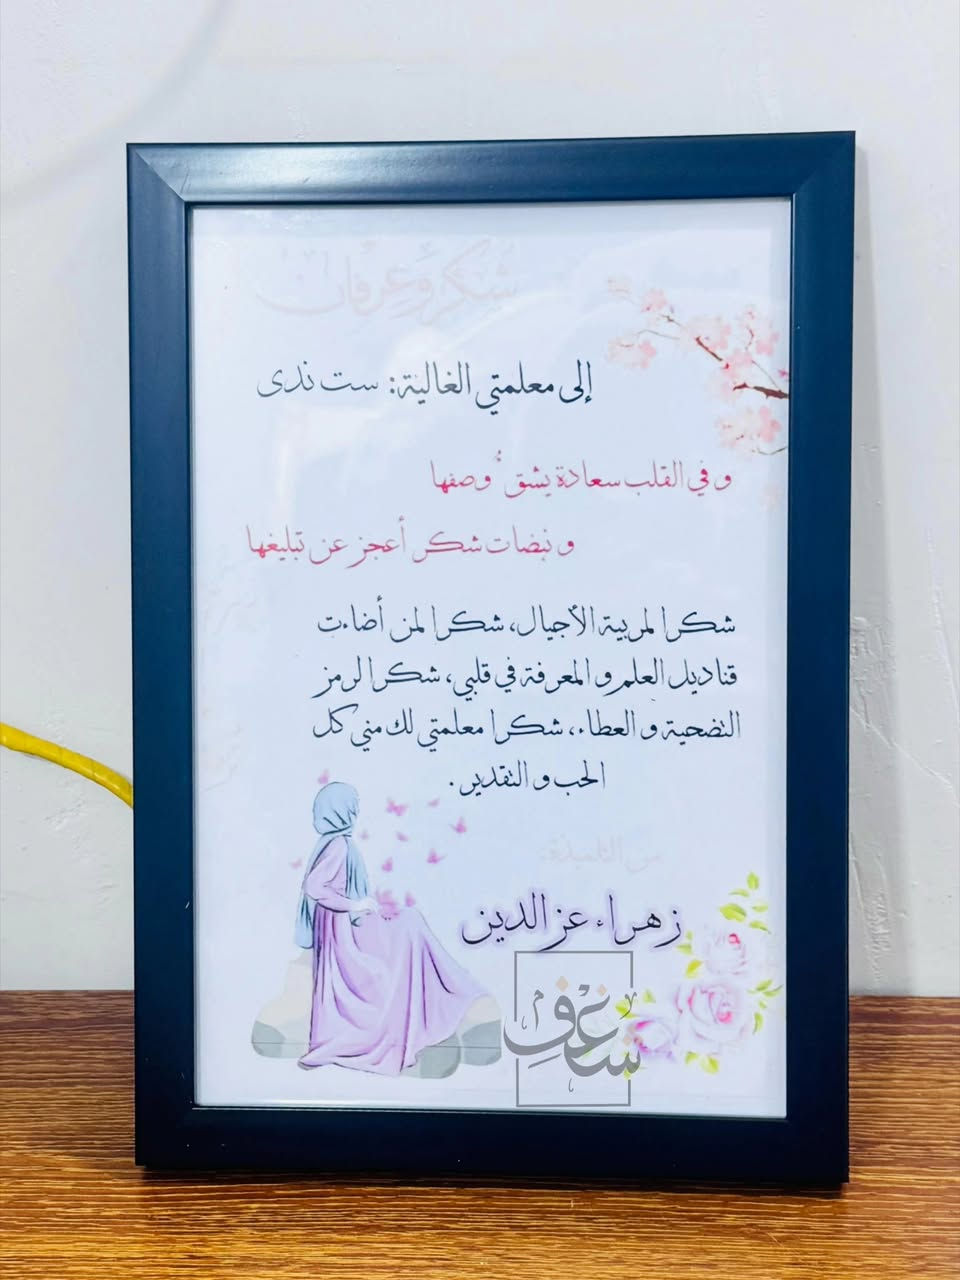 شكر وعرفان
إلى معلمتي الغالية: ست ندى
و في القلب سعادة يشق ُ وصفها
و نبضات شكر أعجز عن تبليغها
شكرا لمربية الأجيال، شكرا لمن أضاءت
قناديل العلم و المعرفة في قلبي، شكرا لرمز
التضحية و العطاء، شكرا معلمتي لك مني كل
الحب و التقدير.
من التلميذة:
زهراء عز الدين
شغف